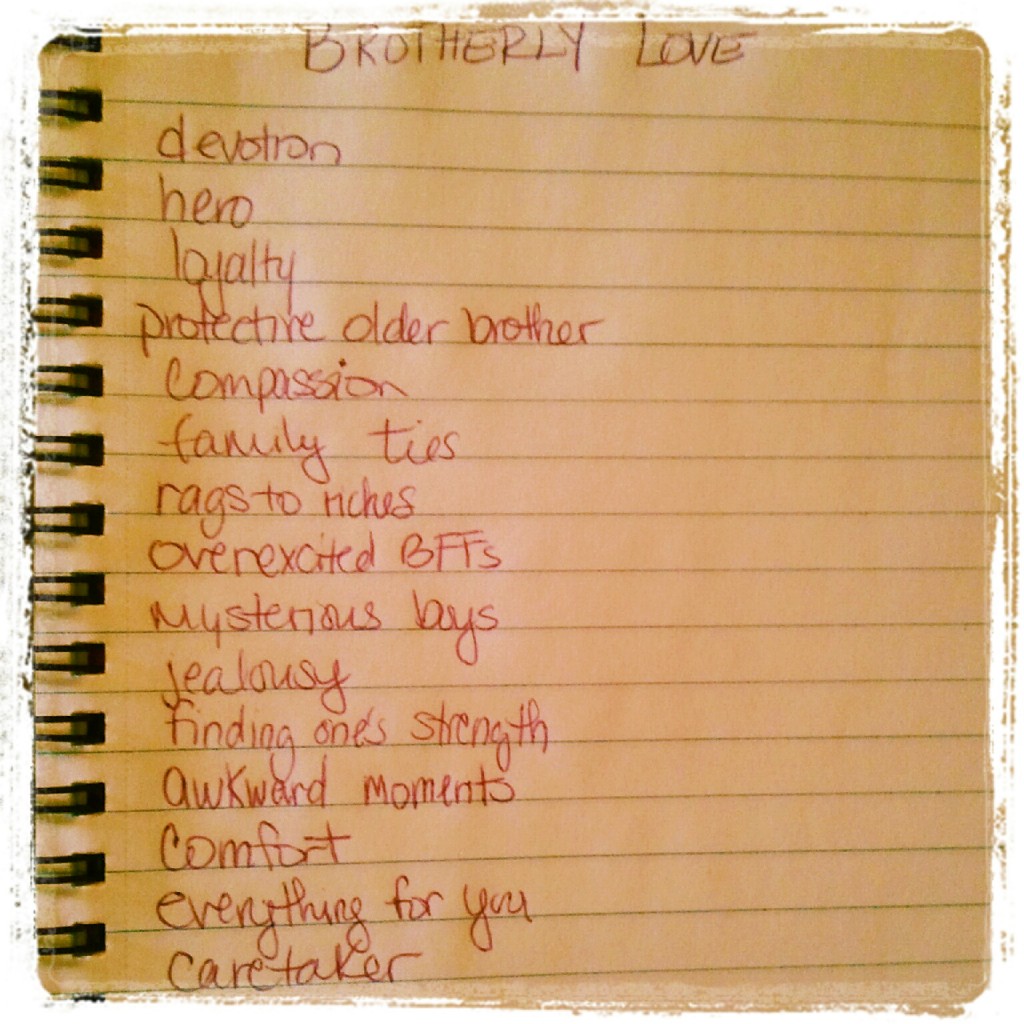 BROTHERLY LOVE
devotion
hero
loyalty
protective older brother
compassion
family ties
rags to riches
overexcited BFFs
mysterious boys
jealousy
finding one's strength
awkward moments
comfort
everything for you
caretaker